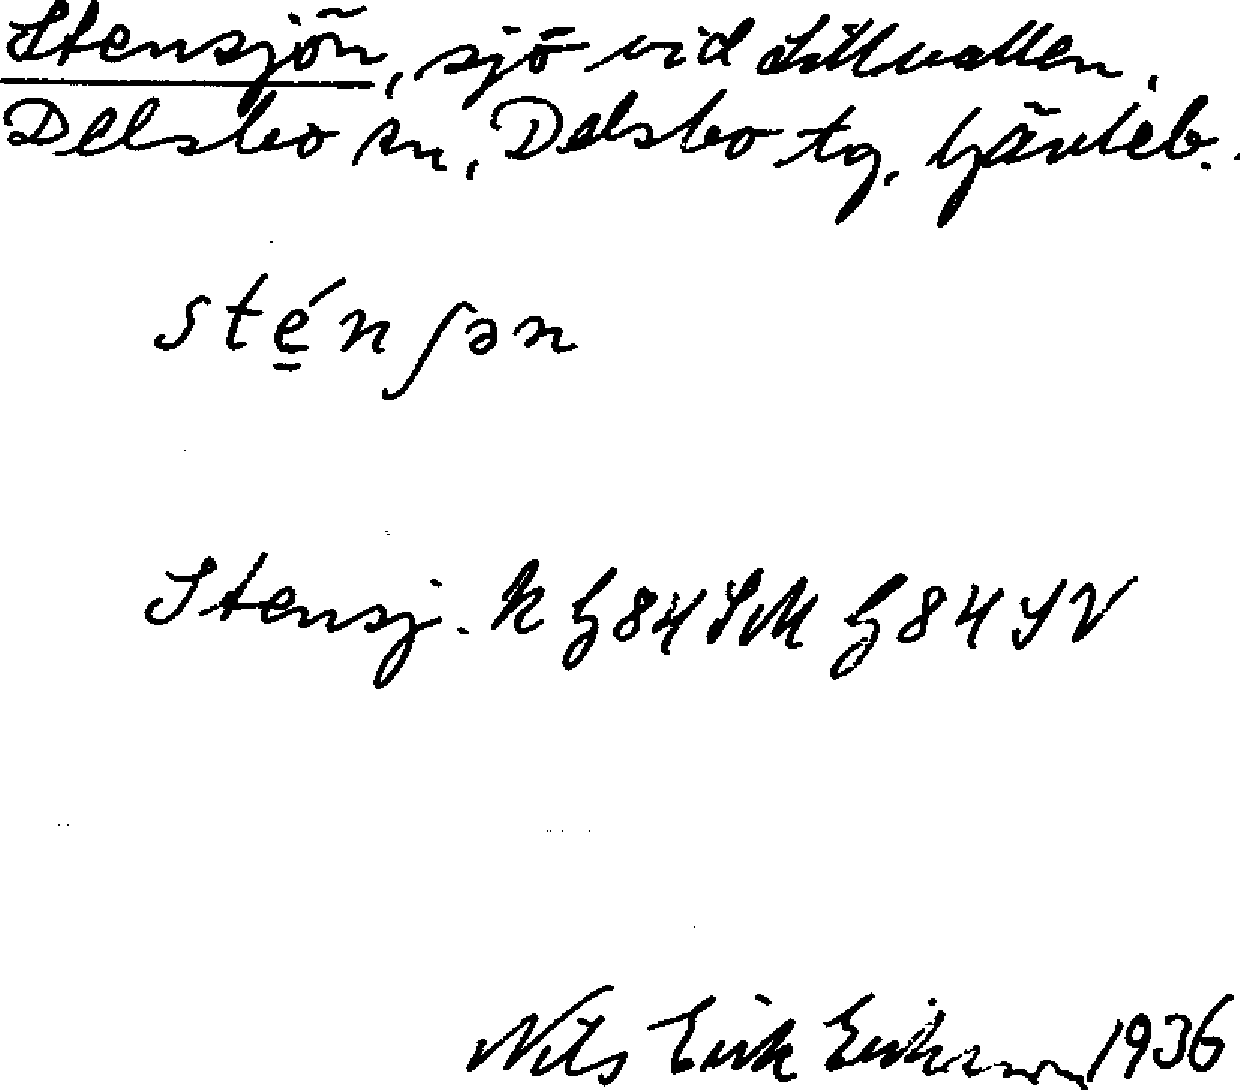 Stensjön, sjö vid Lillvallen,
Delsbo sn, Delsbo tg, Gävleb.
sté̠nʃən
Stensj. K G84SM G84SV
Nils Erik Eriksson 1936